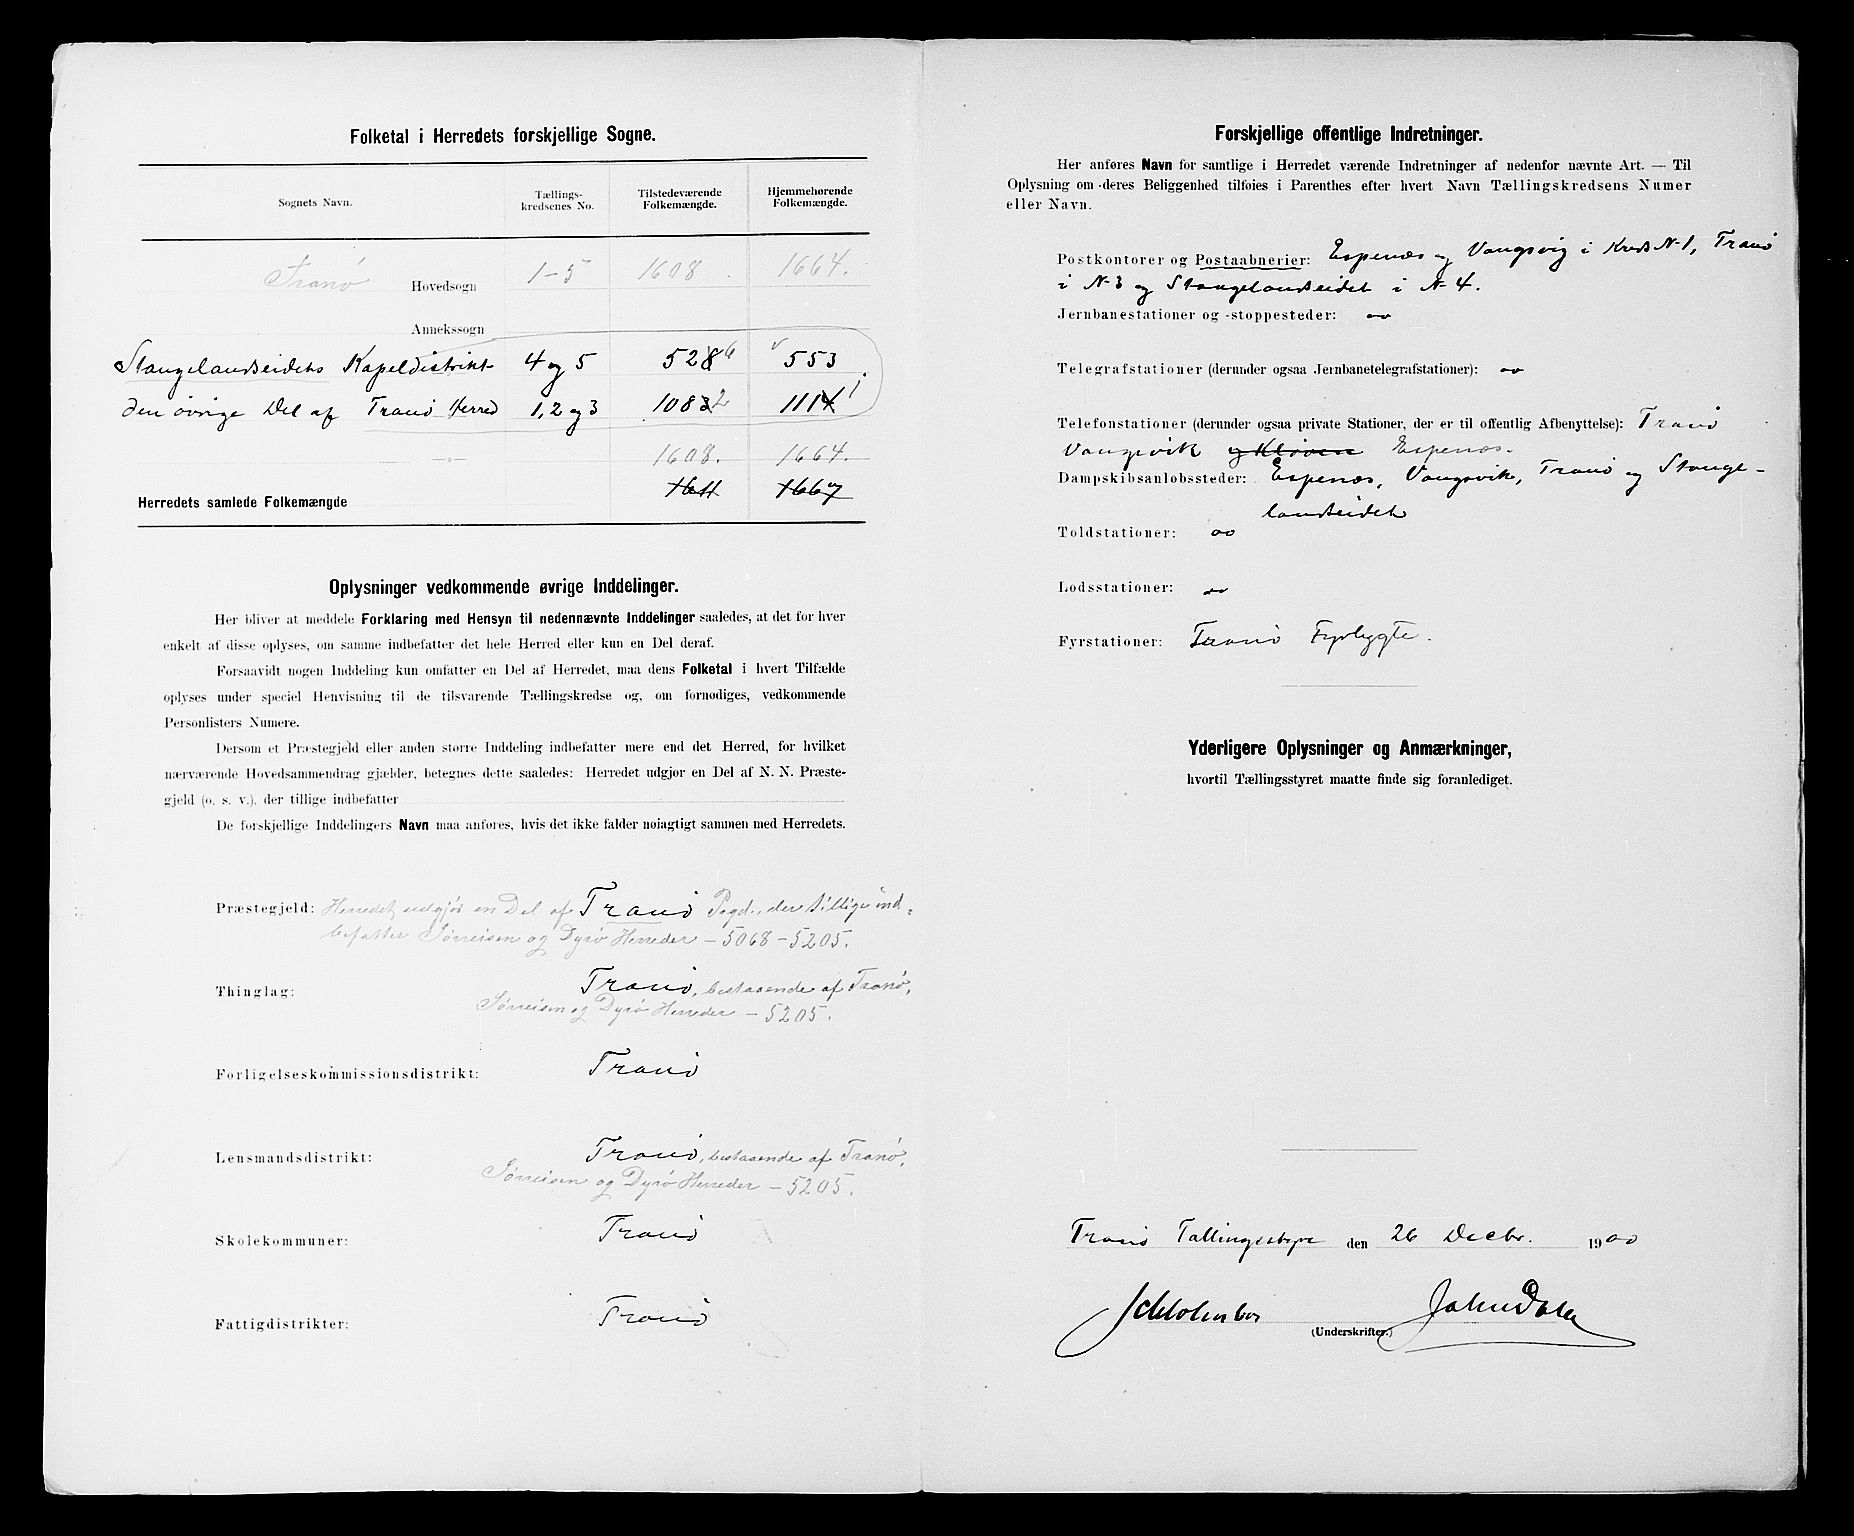 Folketal i Herredets forskjellige Sogne.
Sognets Navn. Tællings-kredsenes No. Tilstedeværende Folkemængde. Hjemmehørende Folkemængde.
Tranø Hovedsogn 1-5 1608 1664.
Annekssogn
Stangelandseidets Kapeldistrikt 4 og 5 5286 553
den øvrige Del af Tranø Herred 1, 2 og 3 10832 11141
—„— 1608. 1664.
Herredets samlede Folkemængde 1611 1667
Oplysninger vedkommende øvrige Inddelinger.
Her bliver at meddele Forklaring med Hensyn til nedennævnte Inddelinger saaledes, at det for hver
enkelt af disse oplyses, om samme indbefatter det hele Herred eller kun en Del deraf.
Forsaavidt nogen Inddeling kun omfatter en Del af Herredet, maa dens Folketal i hvert Tilfælde
oplyses under speciel Henvisning til de tilsvarende Tællingskredse og, om fornødiges, vedkommende
Personlisters Numere.
Dersom et Præstegjeld eller anden større Inddeling indbefatter mere end det Herred, for hvilket
nærværende Hovedsammendrag gjælder, betegnes dette saaledes: Herredet udgjør en Del af N. N. Præste-
gjeld (o. s. v.), der tillige indbefatter
De forskjellige Inddelingers Navn maa anføres, hvis det ikke falder nøiagtigt sammen med Herredets.
Præstegjeld: Herredet udgjør en Del af Tranø Pgd., der tillige ind-
befatter Sørreisen og Dyrø Herreder – 5068 – 5205.
Thinglag: Tranø, bestaaende af Tranø,
Sørreisen og Dyrø Herreder – 5205.
Forligelseskommissionsdistrikt: Tranø
Lensmandsdistrikt: Tranø, bestaaende af Tranø,
Sørreisen og Dyrø Herreder – 5205.
Skolekommuner: Tranø
Fattigdistrikter: Tranø
Forskjellige offentlige Indretninger.
Her anføres Navn for samtlige i Herredet værende Indretninger af nedenfor nævnte Art. — Til
Oplysning om deres Beliggenhed tilføies i Parenthes efter hvert Navn Tællingskredsens Numer
eller Navn.
Postkontorer og Postaabnerier: Espenæs og Vangsvig i Kreds N-1, Tranø
i N-3 og Stangelandseidet i N-4.
Jernbanestationer og -stoppesteder:
Telegrafstationer (derunder ogsaa Jernbanetelegrafstationer):
Telefonstationer (derunder ogsaa private Stationer, der er til offentlig Afbenyttelse): Tranø
Vangsvik og Kløven Espenæs.
Dampskibsanløbssteder: Espenæs, Vangsvik, Tranø og Stange-
landseidet
Toldstationer:
Lodsstationer:
Fyrstationer: Tranø Fyrlygte.
Yderligere Oplysninger og Anmærkninger,
hvortil Tællingsstyret maatte finde sig foranlediget.
Tranø Tællingsstyre den 26 Decbr. 1900
(Underskrifter.)